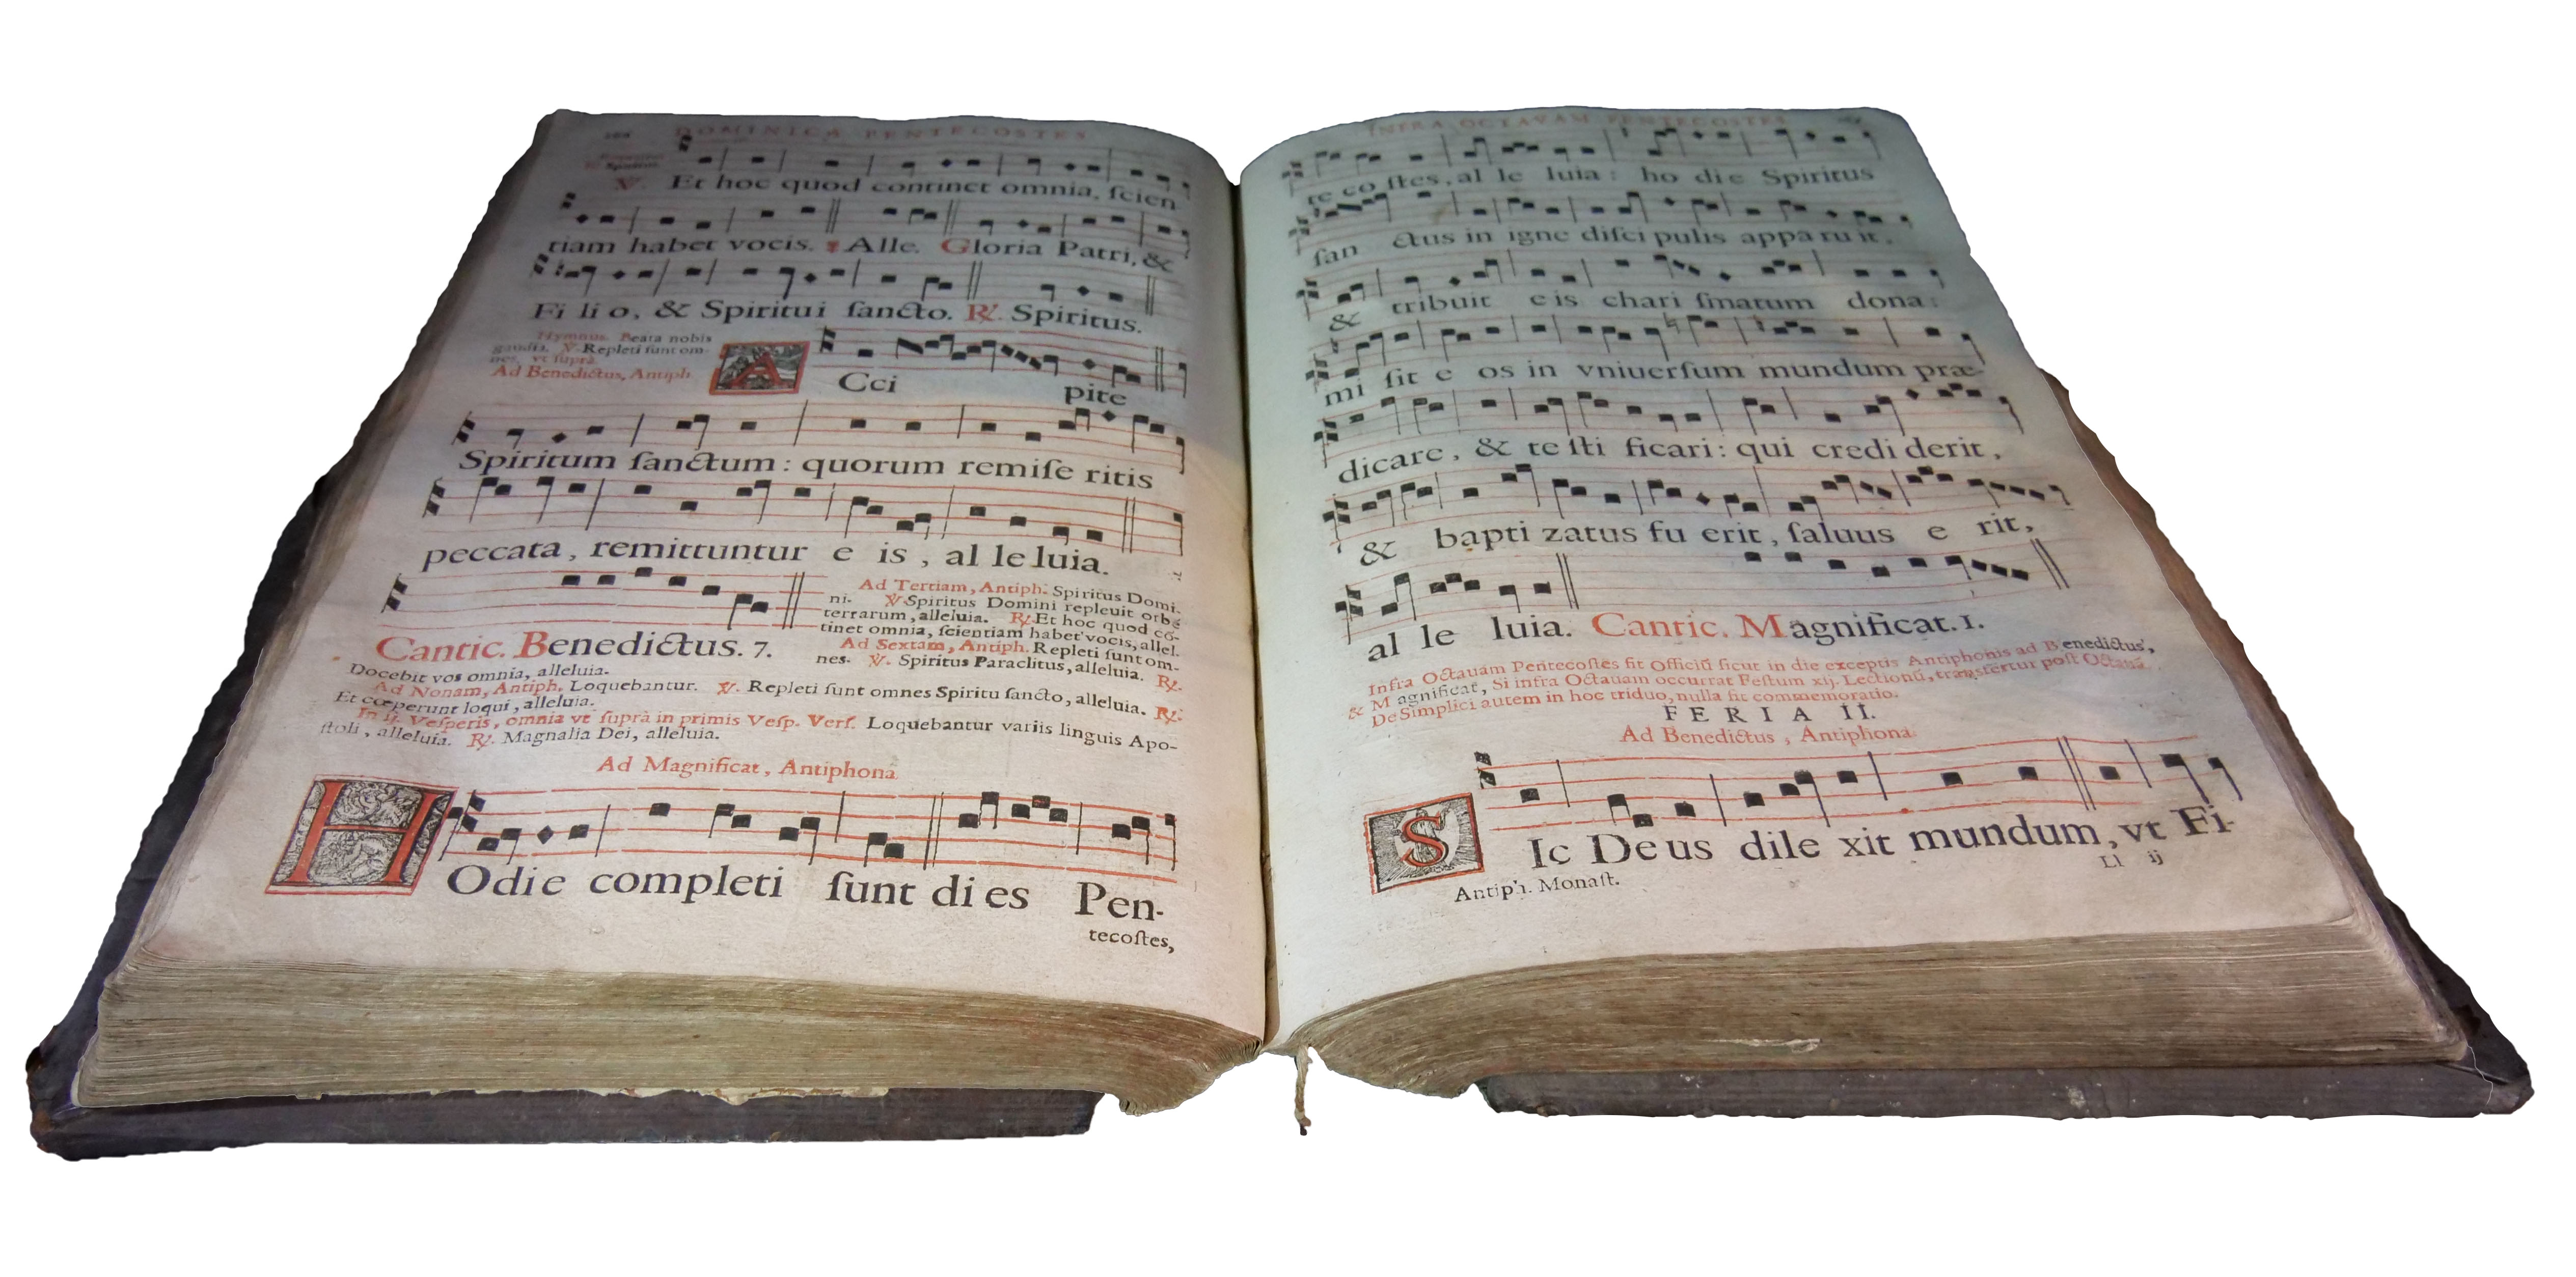 DOMINICA PENTECOSTES
℣. Et hoc quod continet omnia, ſcien
tiam habet vocis. Alle. Gloria Patri, &
Fi li o, & Spiritui ſancto. ℟. Spiritus.
Hymnus. Beata nobis
gaudia. ℣. Repleti ſunt om-
nes, vt ſuprà.
Ad Benedictus, Antiph
A Cci pite
Spiritum ſanctum : quorum remiſe ritis
peccata, remittuntur e is, al le luia.
Cantic. Benedictus. 7.
Ad Tertiam, Antiph. Spiritus Domi-
ni. ℣. Spiritus Domini repleuit orbē
terrarum, alleluia. ℟. Et hoc quod cō-
tinet omnia, ſcientiam habet vocis, allel.
Ad Sextam, Antiph. Repleti ſunt om-
nes. ℣. Spiritus Paraclitus, alleluia. ℟.
Docebit vos omnia, alleluia.
Ad Nonam, Antiph. Loquebantur. ℣. Repleti ſunt omnes Spiritu ſancto, alleluia. ℟.
Et cœperunt loqui, alleluia.
In ij. Veſperis, omnia vt ſuprà in primis Veſp. Verſ. Loquebantur variis linguis Apo-
ſtoli, alleluia. ℟. Magnalia Dei, alleluia.
Ad Magnificat, Antiphona
H Odie completi ſunt di es Pen-
tecoſtes,
INFRA OCTAVAM PENTECOSTES
te co ſtes, al le luia : ho di e Spiritus
ſan ctus in igne diſci pulis appa ru it,
& tribuit e is chari ſmatum dona :
mi ſit e os in vniuerſum mundum præ-
dicare, & te ſti ficari : qui credi derit,
& bapti zatus fu erit, ſaluus e rit,
al le luia. Cantic. Magnificat. 1.
Infra Octauam Pentecoſtes fit Officiū ſicut in die exceptis Antiphonis ad Benedictus,
& Magnificat, Si infra Octauam occurrat Feſtum xij. Lectionū, transfertur poſt Octauā.
De Simplici autem in hoc triduo, nulla fit commemoratio.
FERIA II.
Ad Benedictus, Antiphona
S Ic De us dile xit mundum, vt Fi-
Ll ij
Antiph. Monaſt.